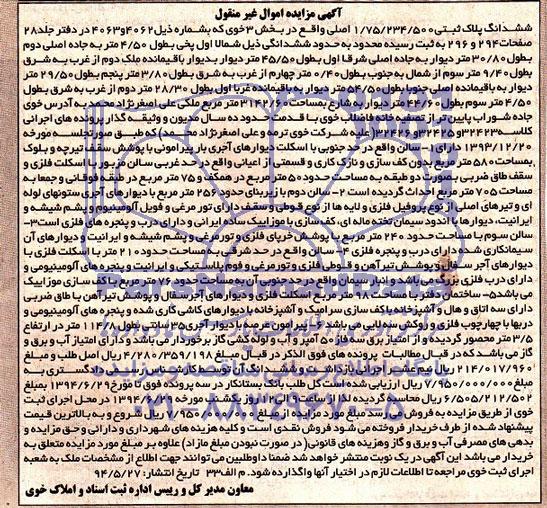 آگهی مزایده اموال غیر منقول
ششدانگ پلاک ثبتی ۱/۷۵/۲۳۴/۵۰۰ اصلی واقع در بخش ۳ خوی که بشماره ذیل ۴۰۶۲ و ۴۰۶۳ در دفتر جلد ۲۸
صفحات ۲۹۴ و ۲۹۶ به ثبت رسیده محدود به حدود ششدانگی ذیل شمالا اول پخی بطول ۴/۵۰ متر به جاده اصلی دوم
بطول ۳۰/۸۰ متر به جاده اصلی شرقا اول بطول ۴۵/۵۰ متر دیوار بدیوار باقیمانده ملک دوم از غرب به شرق
بطول ۹/۴۰ متر سوم از شمال به جنوب بطول ۰/۴۰ متر چهارم از غرب به شرق بطول ۳/۸۰ متر پنجم بطول ۲۹/۵۰ متر
دیوار به باقیمانده جنوبا بطول ۴۵/۵۰ متر دیوار به باقیمانده غربا اول بطول ۲۸/۳۰ متر دوم از غرب به شرق بطول
۴/۵۰ متر سوم بطول ۴۴/۶۰ متر دیوار به شارع بمساحت ۳۱۴۲/۶۰ متر مربع ملکی علی اصغر نژاد صمد به آدرس خوی
جاده شوراب پایین تر از تصفیه خانه فاضلاب خوی با قدمت حدود ده سال مدیون و وثیقه گذار پرونده های اجرائی
کلاسه ۳۲۴۲۳ و ۳۲۴۲۵ و ۳۲۴۲۶ (علیه شرکت خوی ترمه و علی اصغر نژاد صمد) که طبق صورتجلسه مورخه
۱۳۹۳/۱۲/۲۰ دارای ۱- سالن واقع در حد جنوبی با اسکلت دیوارهای آجری بار پیرامونی با پوشش سقف تیرچه و بلوک
بمساحت ۵۸۰ متر مربع بدون کف سازی و نازک کاری و قسمتی از اعیانی واقع در حد غربی سالن مزبور با اسکلت فلزی و
سقف طاق ضربی بصورت دو طبقه به مساحت حدود ۵۰ متر مربع در همکف و ۷۵ متر مربع در طبقه فوقانی و جمعا به
مساحت ۷۰۵ متر مربع احداث گردیده است ۲- سالن دوم با زیربنای حدود ۲۵۶ متر مربع با دیوارهای آجری ستونهای لوله
ای و تیرهای اصلی از نوع پروفیل فلزی و لایه ها از نوع قوطی و سقف دارای تور مرغی و فویل آلومینیوم و پشم شیشه و
ایرانیت، دیوارها با اندود سیمان تخته ماله ای، کف سازی با موزاییک ساده ایرانی و دارای درب و پنجره های فلزی است ۳-
سالن سوم با مساحت حدود ۲۴۰ متر مربع با پوشش خرپای فلزی و تور مرغی و پشم شیشه و ایرانیت و دیوارهای آن
سیمانکاری شده دارای درب و پنجره فلزی ۴- سالن واقع در حد شرقی به مساحت حدود ۲۱۰ متر با اسکلت فلزی با
دیوارهای آجر سفال و پوشش تیرآهن و قوطی فلزی و تور مرغی و فوم پلاستیکی و ایرانیت و پنجره های آلومینیومی و
دارای درب فلزی بزرگ می باشد و انبار سیمان واقع در حد جنوبی آن به مساحت حدود ۷۶ متر مربع با کف سازی موزاییک
می باشد ۵- ساختمان دفتر با مساحت ۹۸ متر مربع اسکلت فلزی و دیوارهای آجر سفال و پوشش تیرآهن با طاق ضربی
دارای سه اتاق و هال و آشپزخانه با کف سازی سرامیک و آشپزخانه با دیوارهای کاشی کاری شده و پنجره های آلومینیومی و
دربها با چهارچوب فلزی و روکش سه لایی می باشد. پیرامون عرصه با دیوار آجری ۳۵ سانت بطول ۱۱۴/۸ متر در ارتفاع
۳/۵ متر محصور گردیده و از امتیاز برق سه فاز ۵۰ آمپر و آب و لوله کشی گاز برخوردار می باشد و دارای امتیاز آب و برق و
گاز می باشد که در قبال مطالبات پرونده های فوق الذکر در قبال ۴/۲۸۰/۳۵۹/۱۹۸ ریال اصل طلب و مبلغ
۲۱۴/۰۱۷/۹۶۰ ریال نیم عشر اجرایی بازداشت و ششدانگ آن توسط کارشناس رسمی دادگستری به
مبلغ ۷/۹۵۰/۰۰۰/۰۰۰ ریال ارزیابی شده است کل طلب بانک بستانکار در سه پرونده فوق تا مورخ ۱۳۹۴/۶/۲۹ بمبلغ
۶/۵۰۵/۲۱۲/۵۰۲ ریال محاسبه گردیده لذا از ساعت ۹ الی ۱۲ روز یکشنبه مورخه ۱۳۹۴/۶/۲۹ در محل اجرای ثبت
خوی از طریق مزایده به فروش می رسد مبلغ مورد مزایده از مبلغ ۷/۹۵۰/۰۰۰/۰۰۰ ریال شروع و به بالاترین قیمت
پیشنهاد شده از طرف خریدار فروخته می شود فروش نقدی است و کلیه هزینه های شهرداری و دارائی و حق مزایده و
بدهی های مصرفی آب و برق و گاز وهزینه های قانونی (در صورت نبودن مبلغ مازاد) علاوه بر مبلغ مورد مزایده متعلق به
خریدار می باشد این آگهی در یک نوبت منتشر خواهد شد ضمنا داوطلبین می توانند جهت اطلاع از مشخصات ملک به شعبه
اجرای ثبت خوی مراجعه تا اطلاعات لازم در اختیار آنها واگذارده شود. م الف ۳۳ تاریخ انتشار: ۹۴/۵/۲۷
معاون مدیر کل و رییس اداره ثبت اسناد و املاک خوی
۰۲۱-۸۸۳۴۹۶۷۰-۵